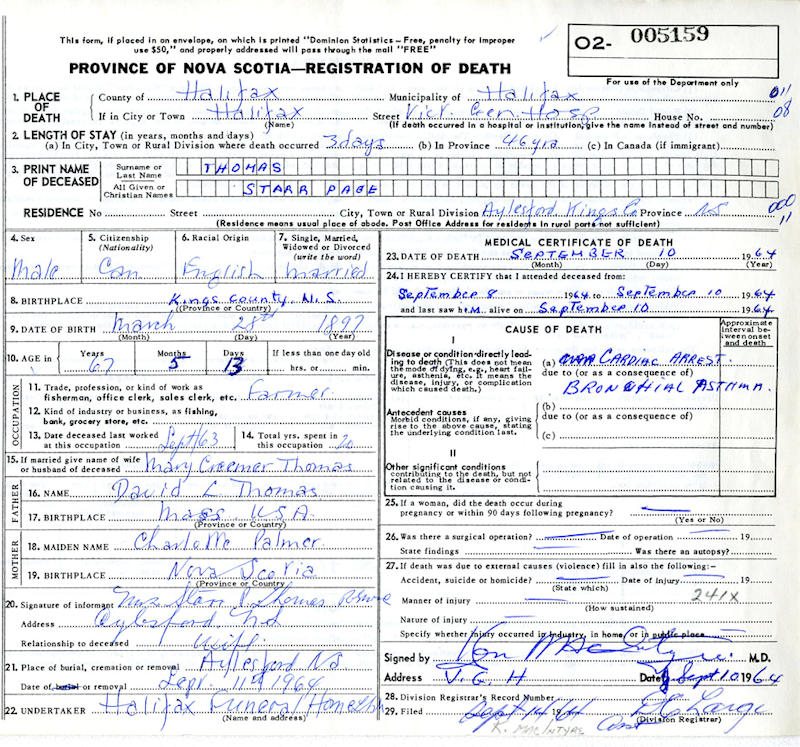 This form, if placed in an envelope, on which is printed "Dominion Statistics—Free, penalty for improper
use $50," and properly addressed will pass through the mail "FREE"
O2- 005159
PROVINCE OF NOVA SCOTIA—REGISTRATION OF DEATH
For use of the Department only
1. PLACE OF DEATH County of Halifax Municipality of Halifax 011
If in City or Town Halifax Street Vict. Gen. Hosp House No. 08
(Name) (If death occurred in a hospital or institution, give the name instead of street and number)
2. LENGTH OF STAY (in years, months and days)
(a) In City, Town or Rural Division where death occurred 3 days (b) In Province 46 yrs (c) In Canada (if immigrant)
3. PRINT NAME OF DECEASED Surname or Last Name THOMAS
All Given or Christian Names STARR PAGE
RESIDENCE No Street City, Town or Rural Division Aylesford Kings Co Province NS 000 11
(Residence means usual place of abode. Post Office Address for residents in rural parts not sufficient)
4. Sex Male
5. Citizenship (Nationality) Can
6. Racial Origin English
7. Single, Married, Widowed or Divorced (write the word) married
8. BIRTHPLACE Kings County, N.S.
(Province or Country)
9. DATE OF BIRTH March 28th 1897
(Month) (Day) (Year)
10. AGE in Years 67 Months 5 Days 13 If less than one day old
hrs. or min.
OCCUPATION
11. Trade, profession, or kind of work as
fisherman, office clerk, sales clerk, etc. Farmer
12. Kind of industry or business, as fishing,
bank, grocery store, etc.
13. Date deceased last worked at this occupation Sept/63
14. Total yrs. spent in this occupation 20
15. If married give name of wife or husband of deceased Mary Creemer Thomas
FATHER
16. NAME David L. Thomas
17. BIRTHPLACE Mass. USA
(Province or Country)
MOTHER
18. MAIDEN NAME Charlotte Palmer
19. BIRTHPLACE Nova Scotia
(Province or Country)
20. Signature of informant Mrs Starr P Thomas
Address Aylesford, NS
Relationship to deceased Wife
21. Place of burial, cremation or removal Aylesford NS
Date of burial or removal Sept. 11th 1964
22. UNDERTAKER Halifax Funeral Home
(Name and address)
MEDICAL CERTIFICATE OF DEATH
23. DATE OF DEATH SEPTEMBER 10 1964
(Month) (Day) (Year)
24. I HEREBY CERTIFY that I attended deceased from:
September 8 1964 to September 10 1964
and last saw him alive on September 10 1964
CAUSE OF DEATH
Approximate interval between onset and death
I
Disease or condition directly leading to death (This does not mean the mode of dying, e.g., heart failure, asthenia, etc. It means the disease, injury, or complication which caused death.)
(a) CARDIAC ARREST
due to (or as a consequence of)
BRONCHIAL ASTHMA
Antecedent causes
Morbid conditions, if any, giving rise to the above cause, stating the underlying condition last.
(b)
due to (or as a consequence of)
(c)
II
Other significant conditions
contributing to the death, but not related to the disease or condition causing it.
25. If a woman, did the death occur during
pregnancy or within 90 days following pregnancy?
(Yes or No)
26. Was there a surgical operation? Date of operation 19
State findings Was there an autopsy?
27. If death was due to external causes (violence) fill in also the following:—
Accident, suicide or homicide? Date of injury 19
(State which)
Manner of injury 241X
(How sustained)
Nature of injury
Specify whether injury occurred in industry, in home, or in public place
Signed by Ken MacIntyre M.D.
Address V.G.H Date Sept 10 1964
28. Division Registrar's Record Number
29. Filed Sept 14/64
(Division Registrar)
K. MACINTYRE